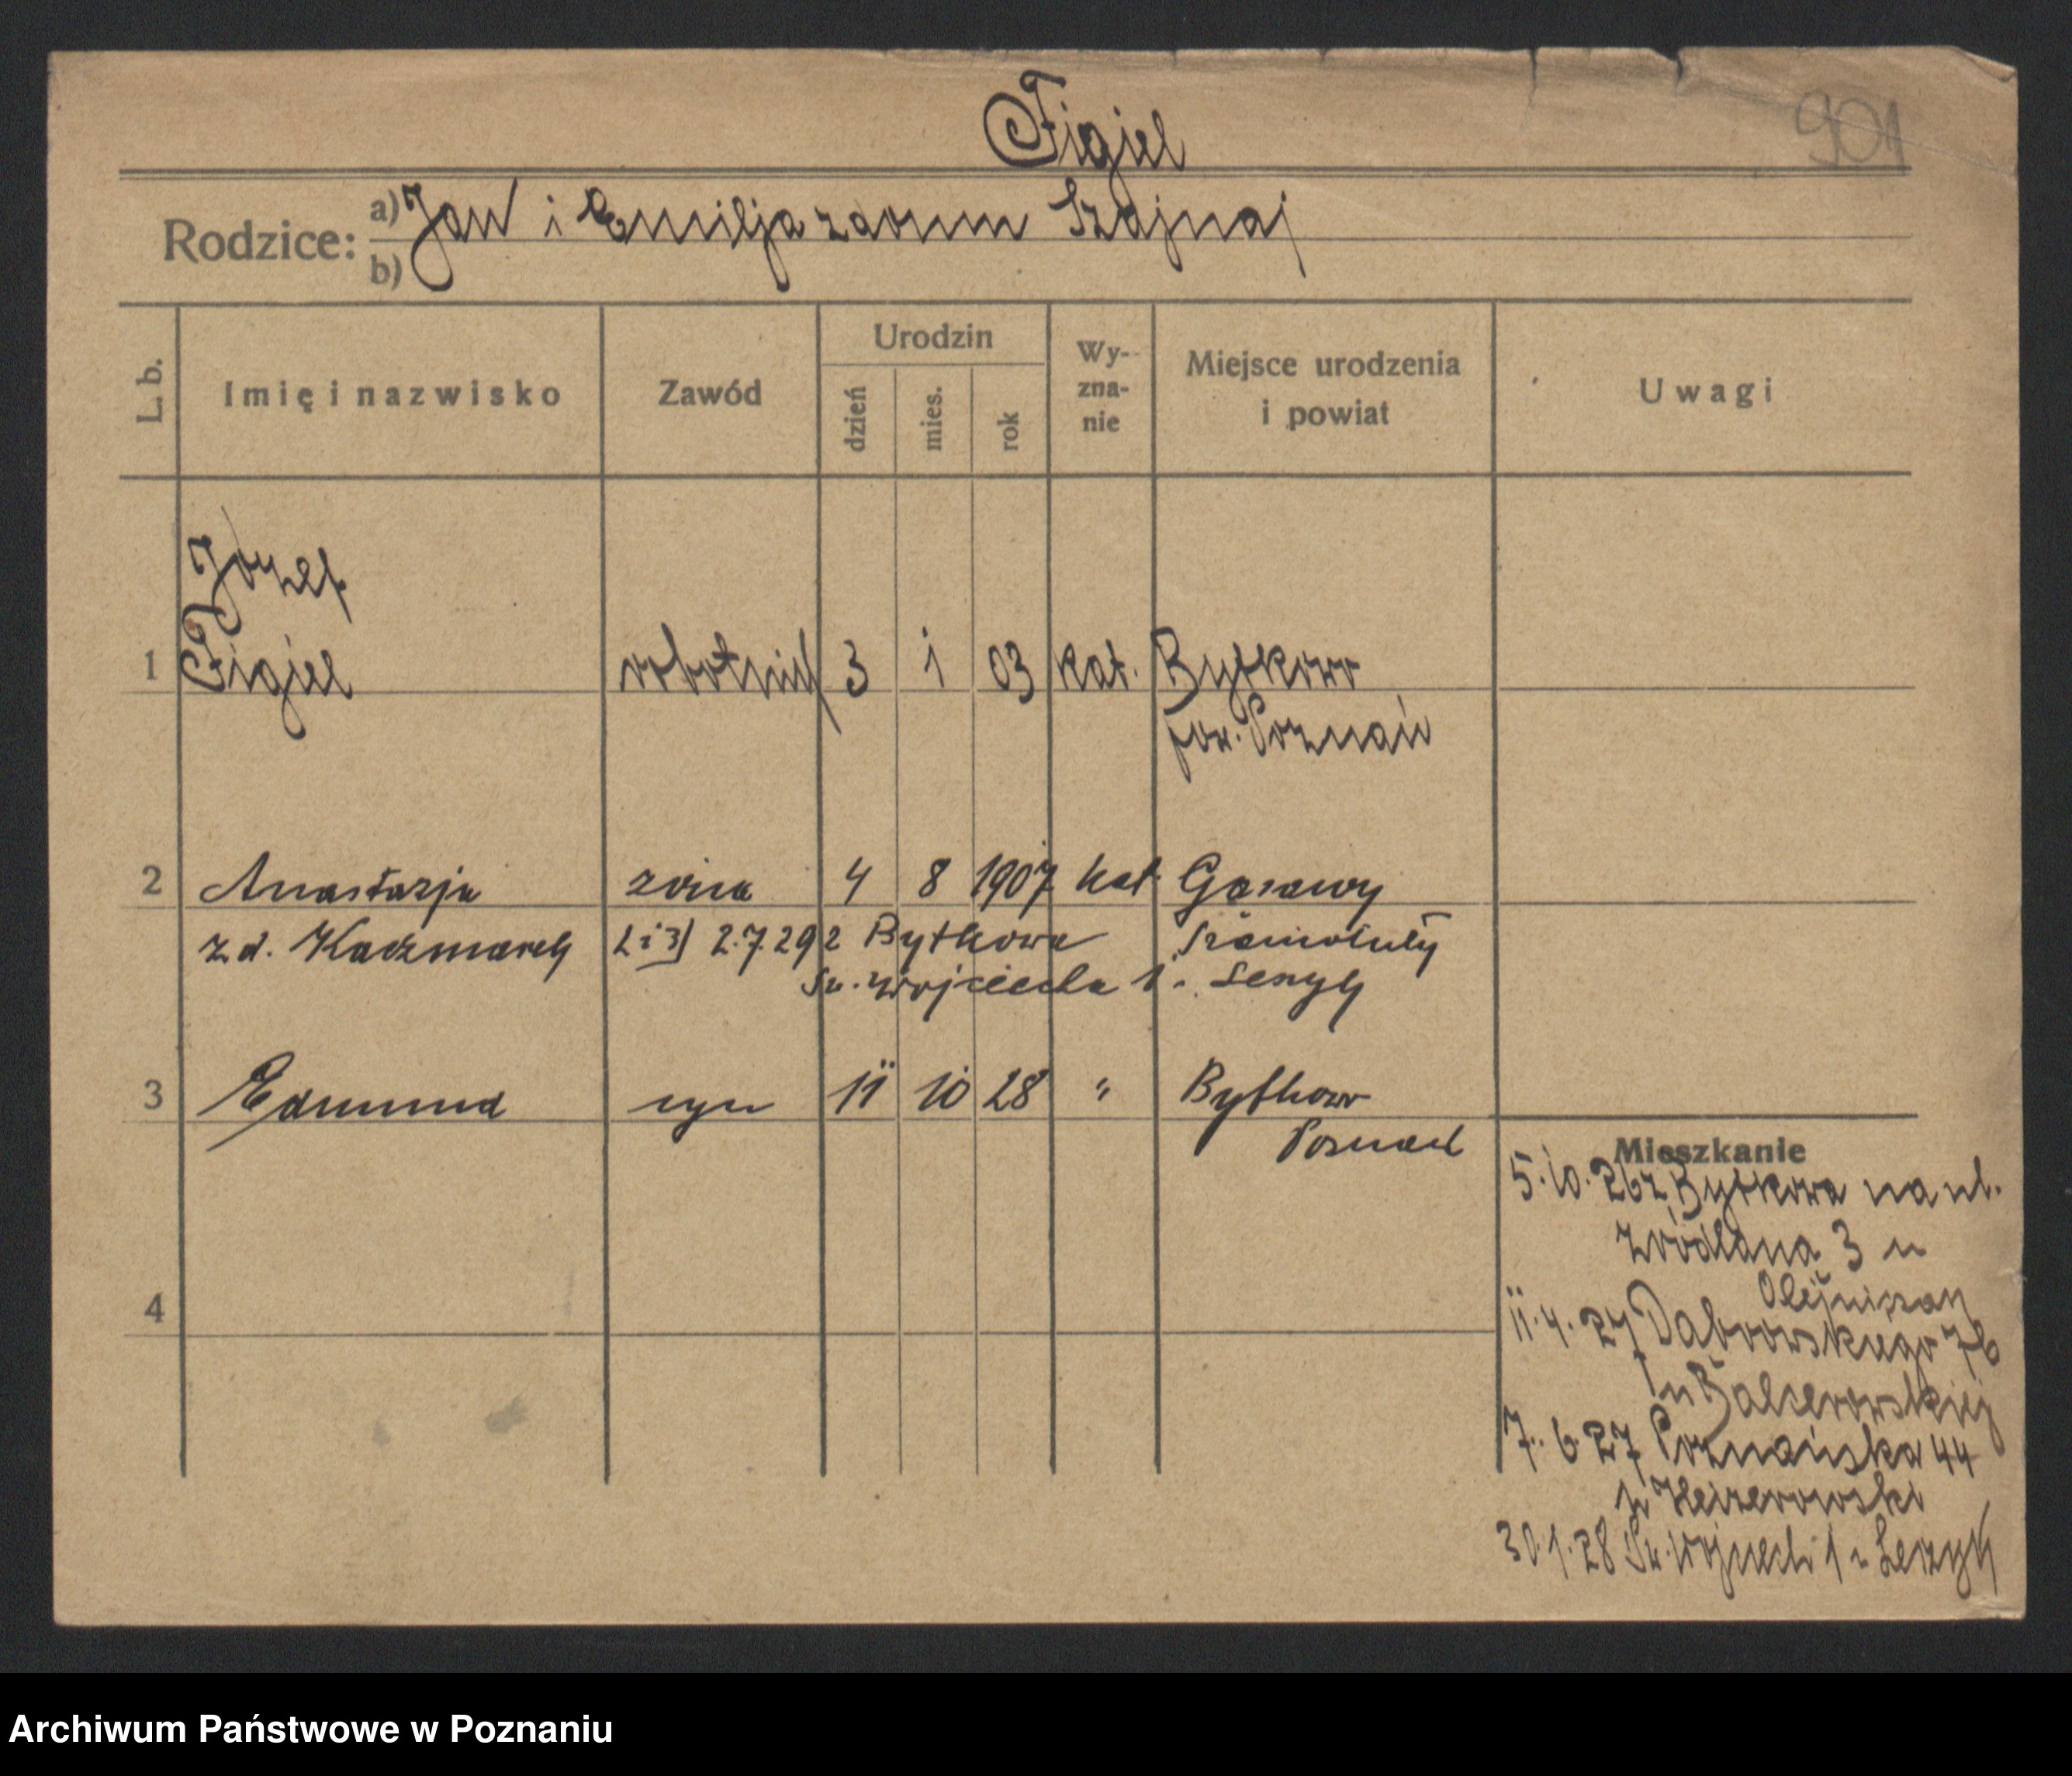 Figiel
901
Rodzice: a) Jan i Emilja z domu Szajnaj
b)
L. b.
Imię i nazwisko
Zawód
Urodzin
dzień
mies.
rok
Wy-
zna-
nie
Miejsce urodzenia
i powiat
Uwagi
Józef
1 Figiel robotnik 3 1 03 kat. Bytkowo
pow. Poznań
2 Anastazja żona 4 8 1907 kat Gąsawy
z d. Kaczmarek 2 i 3) 2.7.29 z Bytkowa Szamotuły
Św. Wojciecha 1. Leszyk
3 Edmund syn 11 10 28 " Bytkowo
Poznań
Mieszkanie
5.10.26 z Bytkowa na ul.
Źródlana 3 u
11.4.27 Dąbrowskiego 76
u Balcerowskiej
7.6.27 Poznańska 44
30.1.28 Św. Wojciech 1 u Leszyk
4
Archiwum Państwowe w Poznaniu